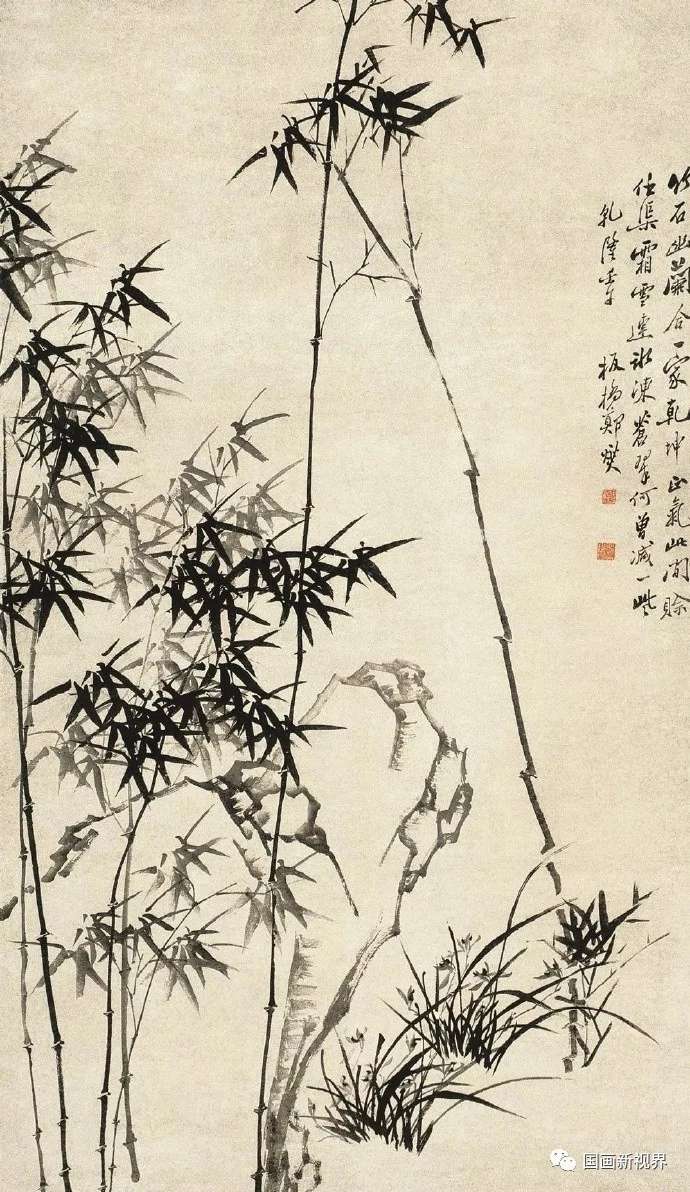 竹石幽蘭合一家乾坤正氣此間賒
任渠霜雪連冰凍蒼翠何曾減一些
乾隆壬午 板橋鄭燮
国画新视界